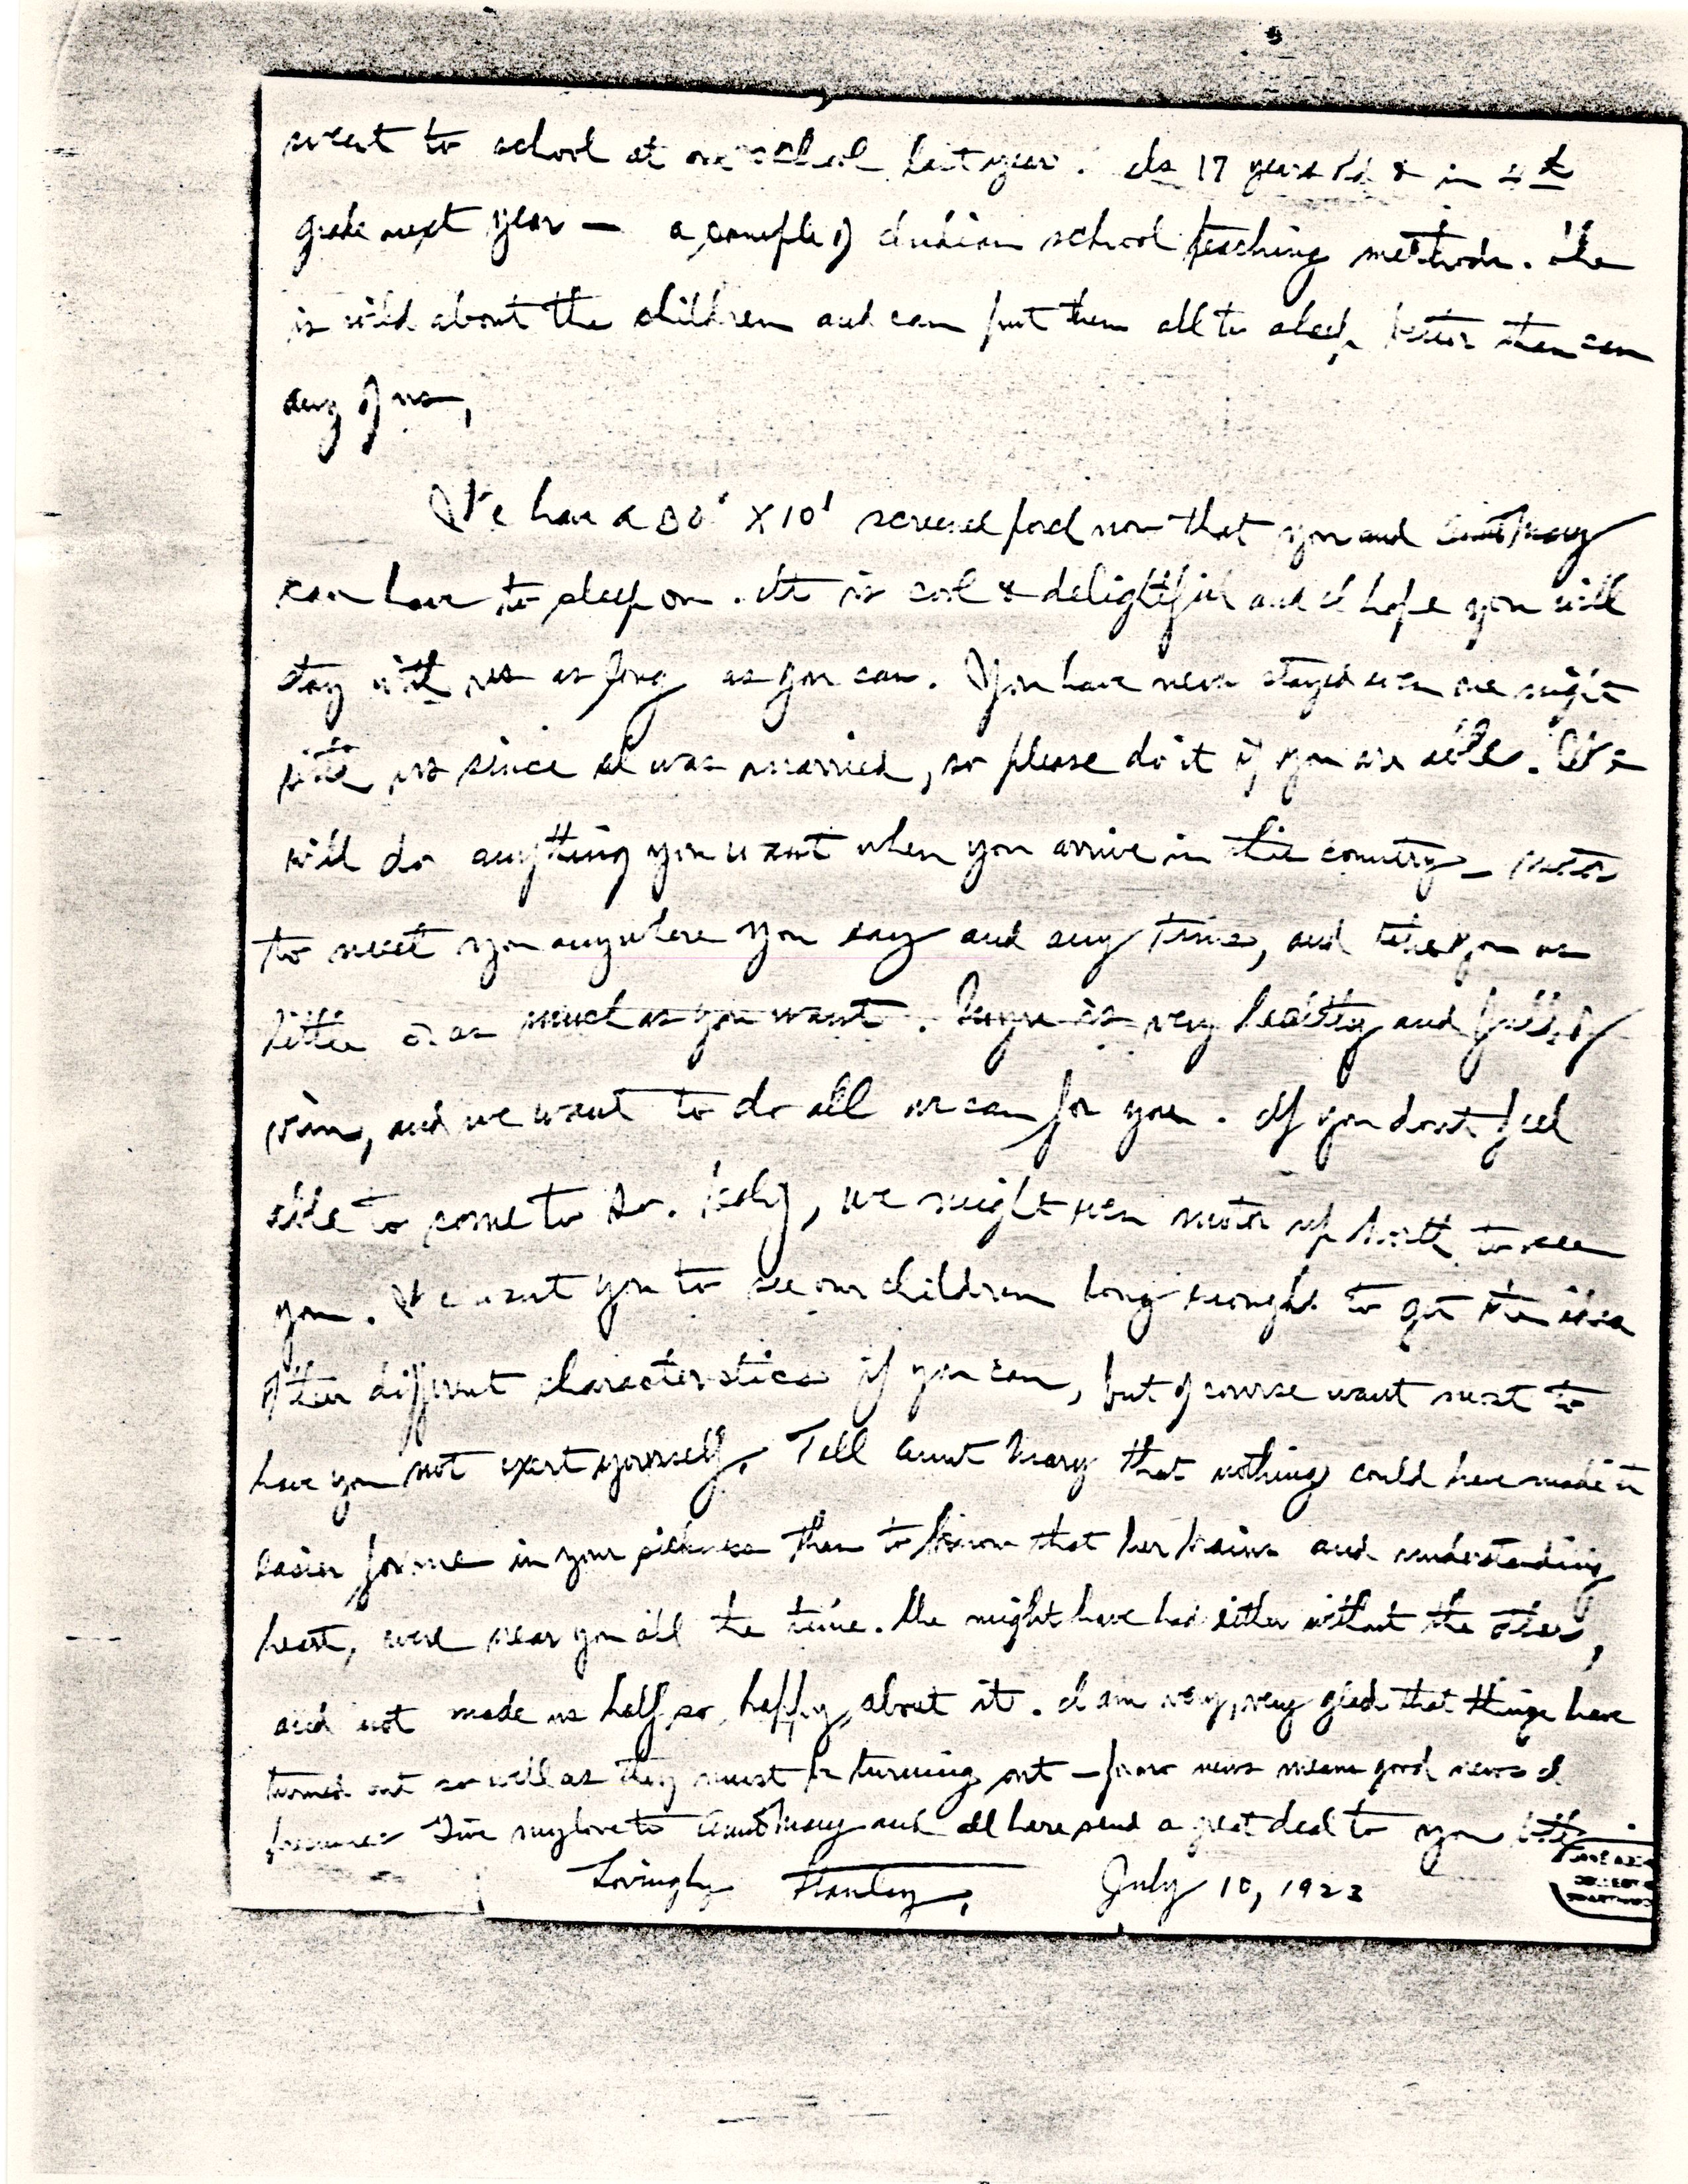 went to school at our school last year. Is 17 years old & in 4th
grade next year — a sample of Indian school teaching methods. She
is wild about the children and can put them all to sleep better than can
any of us,
We have a 30' X 10' screened porch now that you and Aunt Mary
can have to sleep on. It is cool & delightful and I hope you will
stay with us as long as you can. You have never stayed even one night
with us since I was married, so please do it if you are able. We
will do anything you want when you arrive in this country – motor
to meet you anywhere you say and any time, and take you as
little or as much as you want. is very healthy and full of
vim, and we want to do all we can for you. If you don't feel
able to come to So. , we might even motor up North to see
you. We want you to see our children long enough to get the idea
of their different characteristics if you can, but of course want most to
have you not exert yourself. Tell Aunt Mary that nothing could have made it
easier for me in your sickness than to know that her brains and understanding
heart, were near you all the time. She might have had either without the other,
and not made us half so happy about it. I am very, very glad that things have
turned out so well as they must be turning out – for no news means good news I
presume. Give my love to Aunt Mary and all here send a great deal to you both.
Lovingly Stanley, July 10, 1923